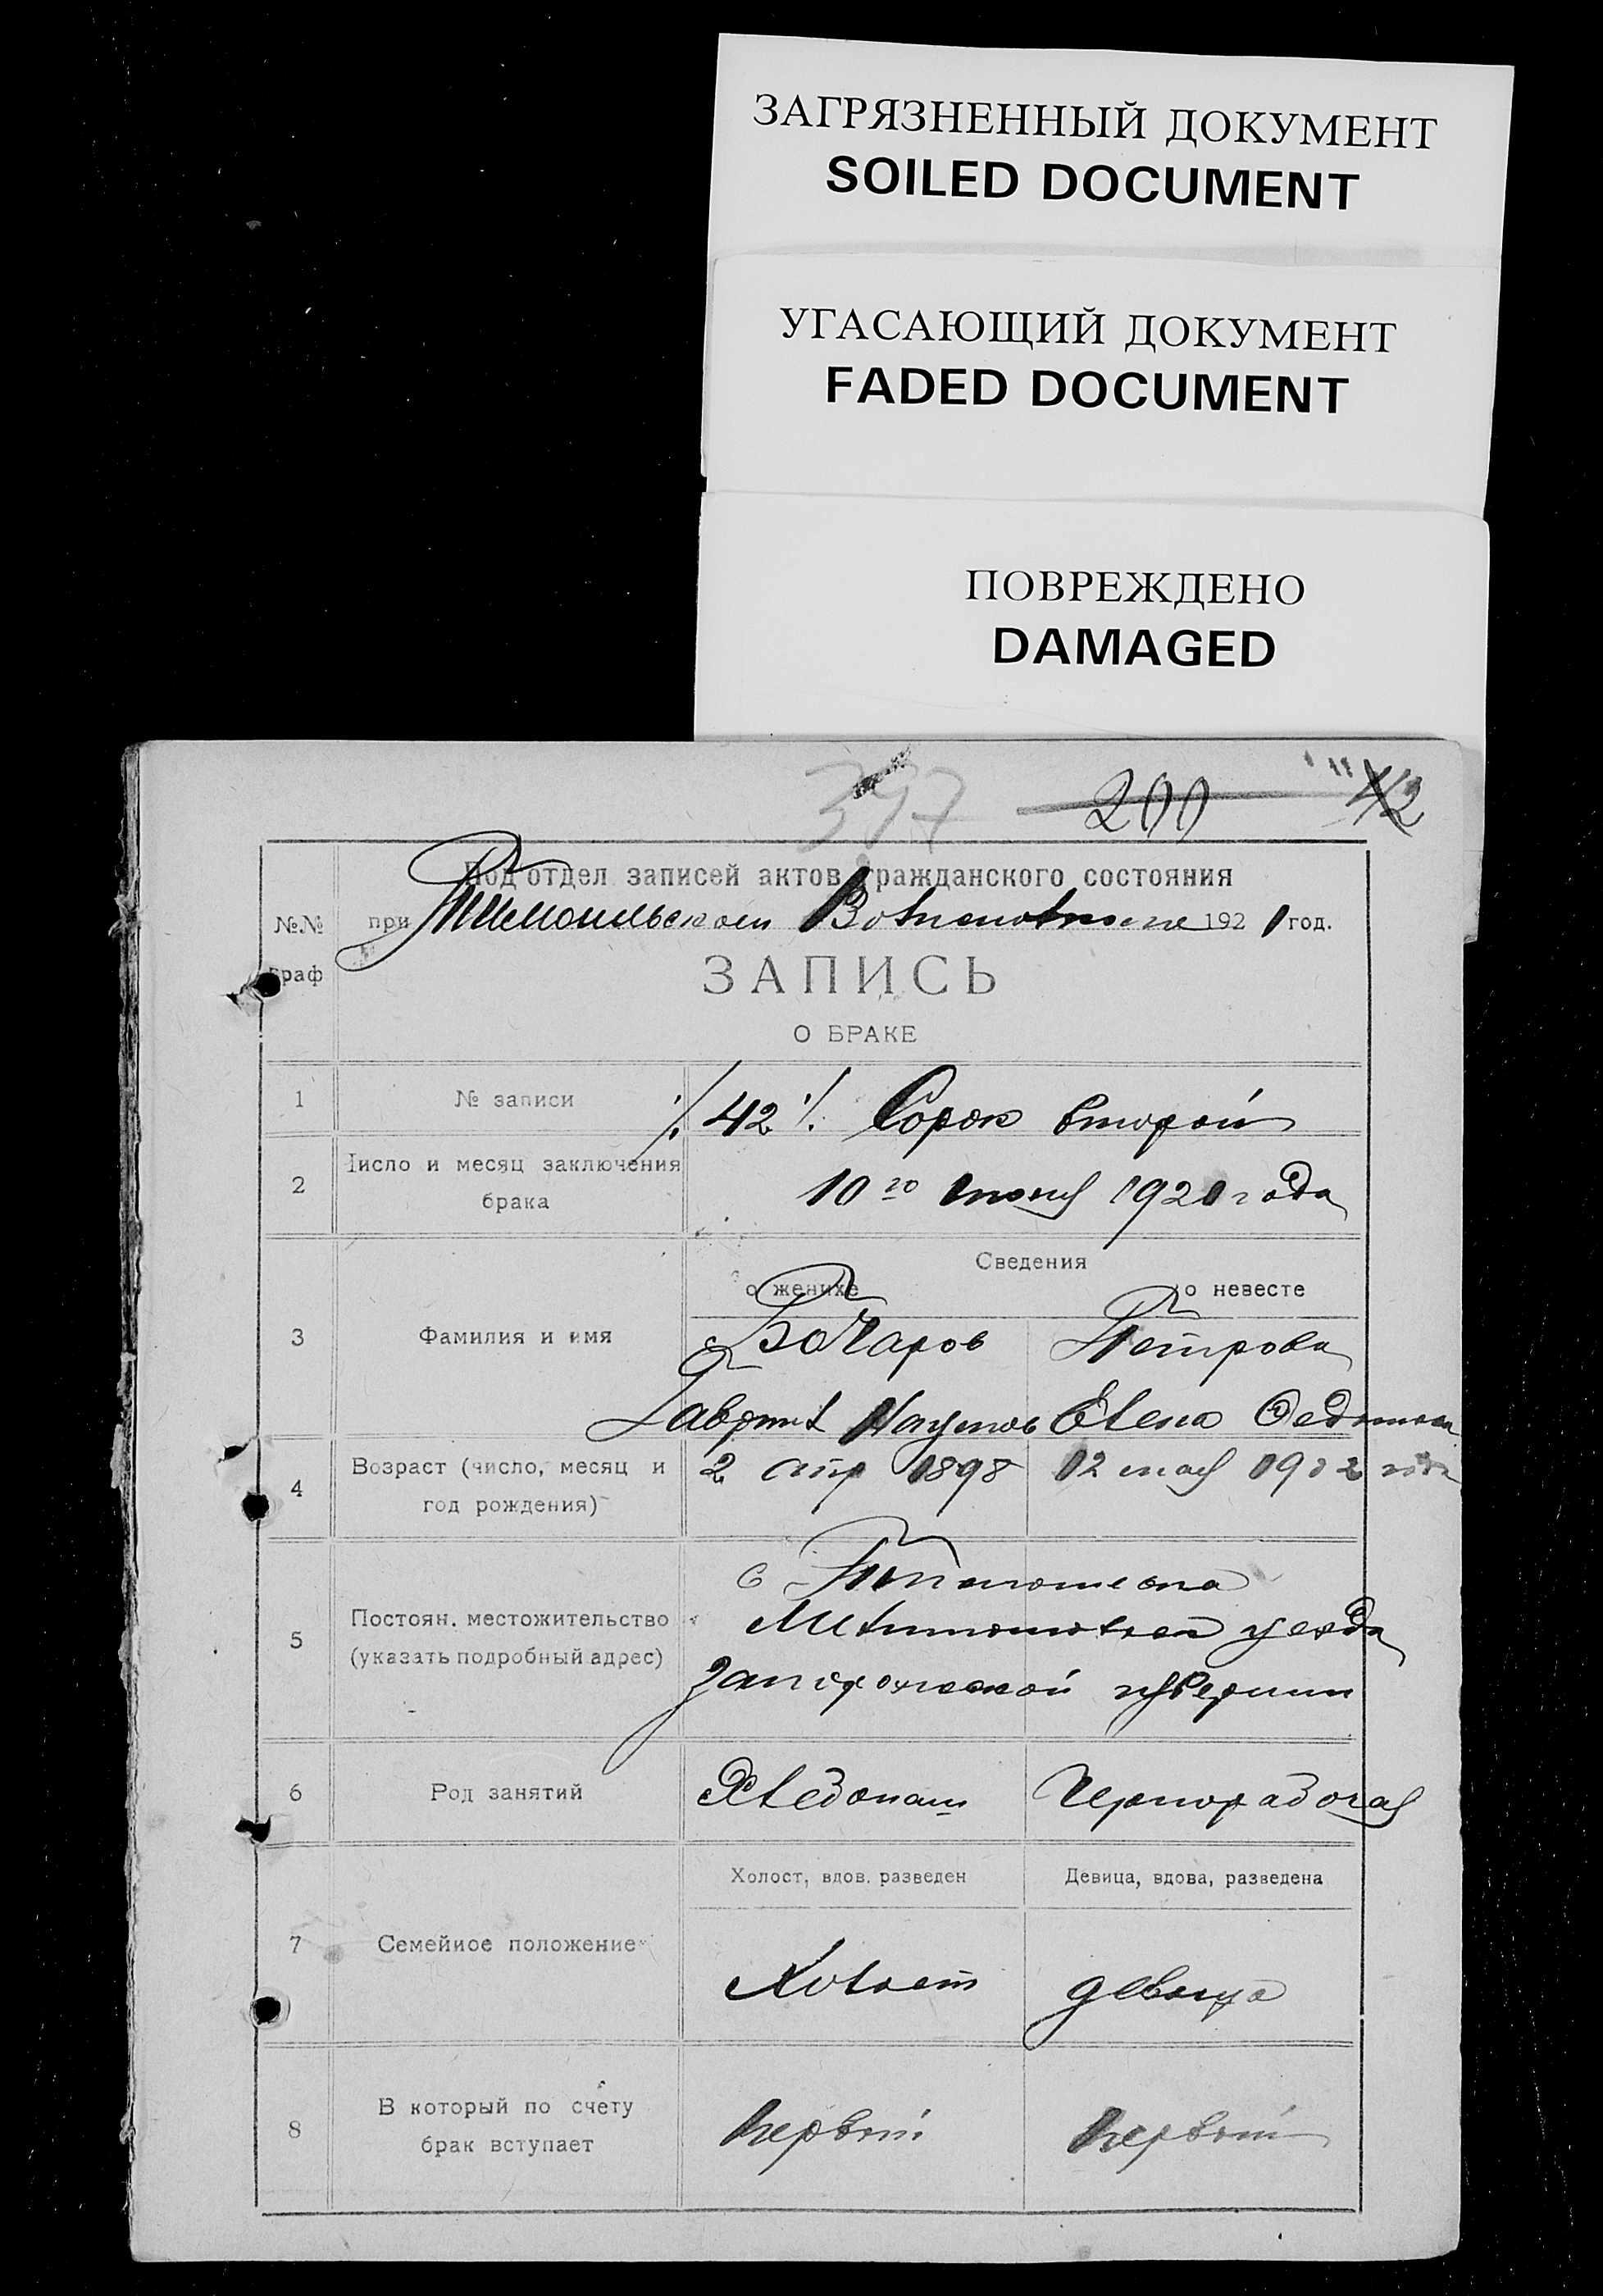 ЗАГРЯЗНЕННЫЙ ДОКУМЕНТ
SOILED DOCUMENT
УГАСАЮЩИЙ ДОКУМЕНТ
FADED DOCUMENT
ПОВРЕЖДЕНО
DAMAGED
397 200 42
Под'отдел записей актов гражданского состояния
№№ граф
при Волисполкоме 1921 год.
ЗАПИСЬ
О БРАКЕ
1 № записи ./. 42 ./. Сорок второй
2 Число и месяц заключения брака 10го июня 1921 года
Сведения
о женихе о невесте
3 Фамилия и имя Бочаров Петрова
Гавриил Наумов Елена Федотова
4 Возраст (число, месяц и год рождения) 2 апр 1898 12 мая 1902 года
5 Постоян. местожительство (указать подробный адрес) с
Мелитопольской уезда
Запорожской губернии
6 Род занятий Хлебопаш Чернорабочая
Холост, вдов, разведен Девица, вдова, разведена
7 Семейное положение Холост девица
8 В который по счету брак вступает первый первый